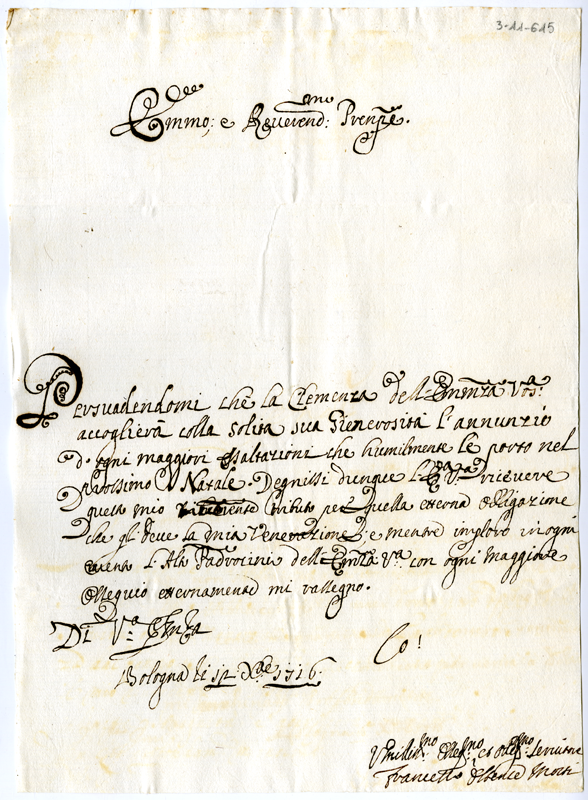 3-11-615
Emmo; e Reverend:mo Prenpe.
Persuadendomi che la Clemenza dell Eminza Vra:
accoglierà colla solita sua Gienerosità l'annunzio
d'ogni maggiori Esaltazioni che humilmente le porto nel
Natale. Degnissi dunque l'Ema Va ricevere
questo mio tributo per quella etterna obligazione
che gli deve la mia Venerazione, e mentre imploro in ogni
l'Alto Padrocinio dell Eminza Va con ogni maggiore
ossequio etternamente mi rassegno.
Di Va: Emza
Bologna li 12 Xbre 1716.
Umiliss.mo
Francesco